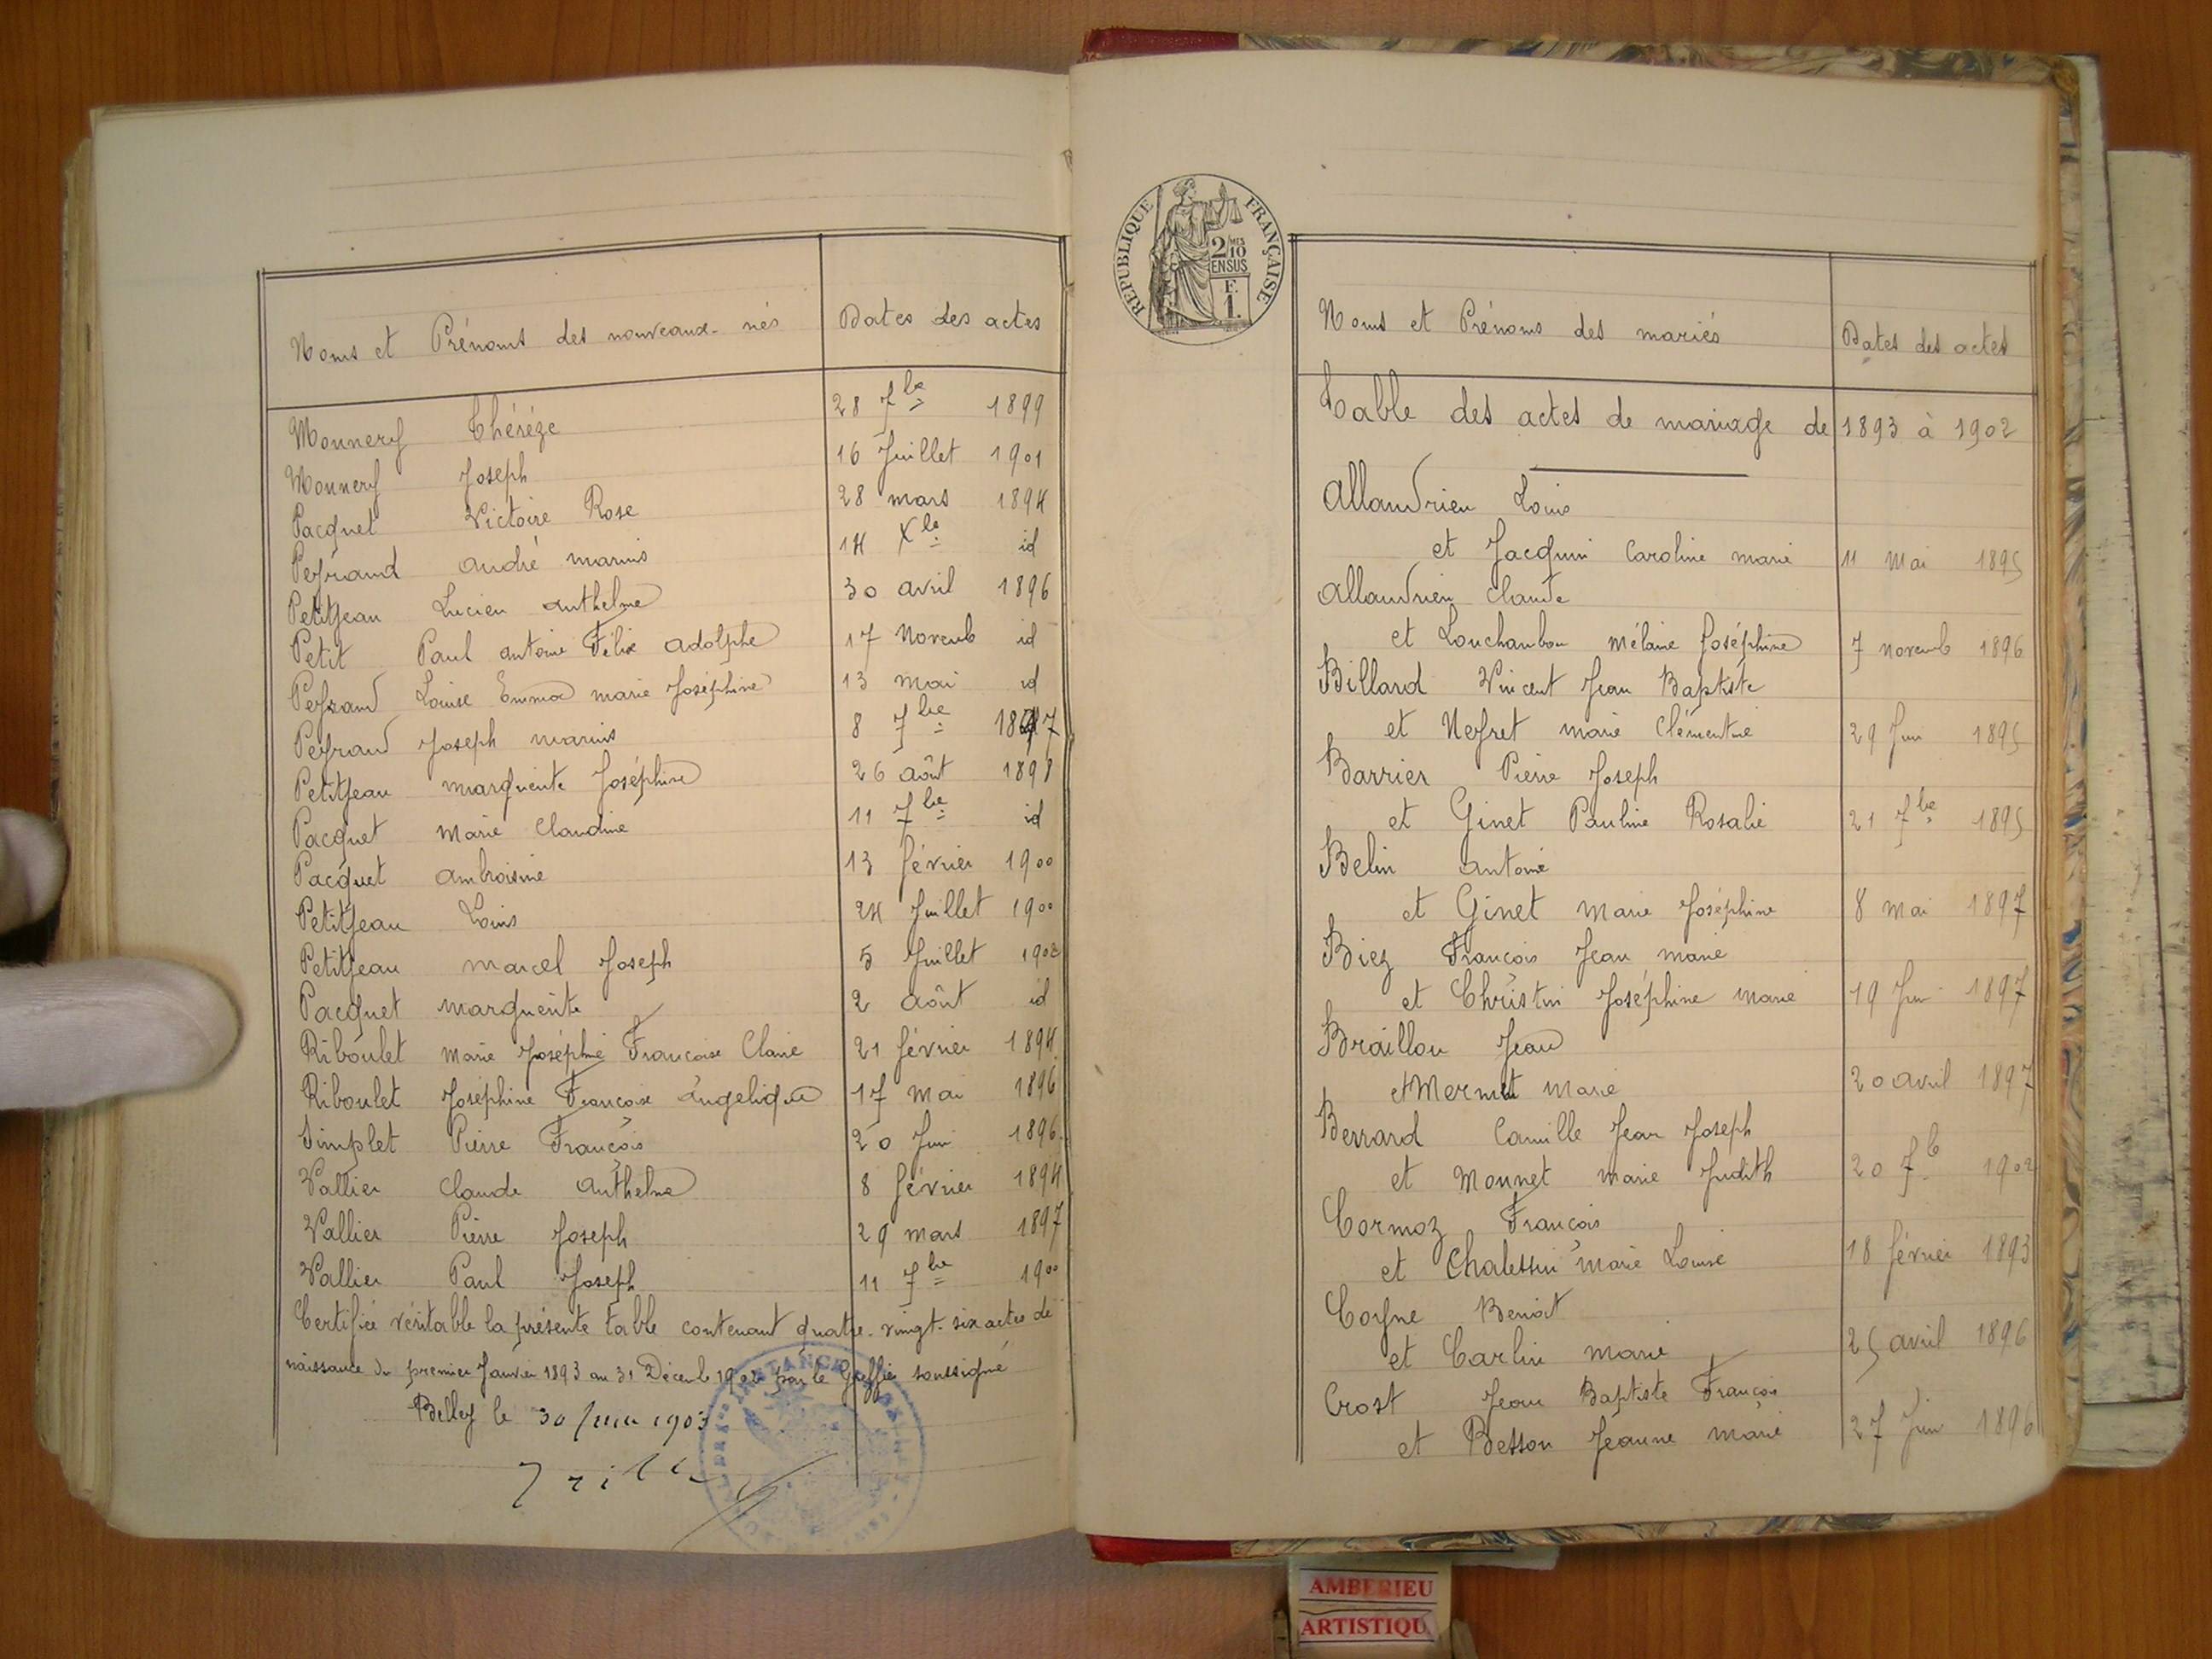 Noms et Prénoms des nouveaux-nés Dates des actes
Monnery Thérèze 28 7bre 1899
Monnery Joseph 16 Juillet 1901
Pacquet Victoire Rose 28 mars 1894
Peyraud André marius 14 Xbre id
Petitjean Lucien Anthelme 30 avril 1896
Petit Paul antoine Félix Adolphe 17 Novemb id
Peyraud Louise Emma marie Joséphine 13 mai id
Peyraud Joseph marius 8 7bre 1897
Petitjean marguerite Joséphine 26 août 1898
Pacquet Marie Claudine 11 7bre id
Pacquet Ambroisine 13 février 1900
Petitjean Louis 24 Juillet 1900
Petitjean Marcel Joseph 5 Juillet 1902
Pacquet marguerite 2 août id
Riboulet Marie Joséphine Françoise Claire 21 février 1894
Riboulet Joséphine Françoise Angeliqua 17 Mai 1896
Simplet Pierre François 20 Juin 1896
Vallier Claude Anthelme 8 février 1894
Vallier Pierre Joseph 29 mars 1897
Vallier Paul Joseph 11 7bre 1900
Certifiée véritable la présente table contenant quatre-vingt-six actes de
naissance du premier Janvier 1893 au 31 Décemb 1902 par le Greffier soussigné
Belley le 30 Juin 1903
REPUBLIQUE FRANÇAISE
2/10MES
EN SUS
F.
1.
Noms et Prénoms des mariés Dates des actes
Table des actes de mariage de 1893 à 1902
Allaudrieu Louis
et Jacquin Caroline marie 11 Mai 1895
Allaudrieu Claude
et Louchanbon Mélanie Joséphine 7 novemb 1896
Billard Vincent Jean Baptiste
et Neyret marie Clémentine 29 Juin 1895
Barrier Pierre Joseph
et Ginet Pauline Rosalie 21 7bre 1895
Belin Antoine
et Ginet Marie Joséphine 8 mai 1897
Biez François Jean marie
et Christin Joséphine Marie 19 Juin 1897
Braillon Jean
et Mermet Marie 20 avril 1897
Berrard Camille Jean Joseph
et Monnet marie Judith 20 7b 1902
Cormoz François
et Chalessin marie Louise 18 février 1893
Coyne Benoit
et Carlin marie 25 avril 1896
Crost Jean Baptiste François
et Besson Jeanne marie 27 Juin 1896
AMBERIEU
ARTISTIQU